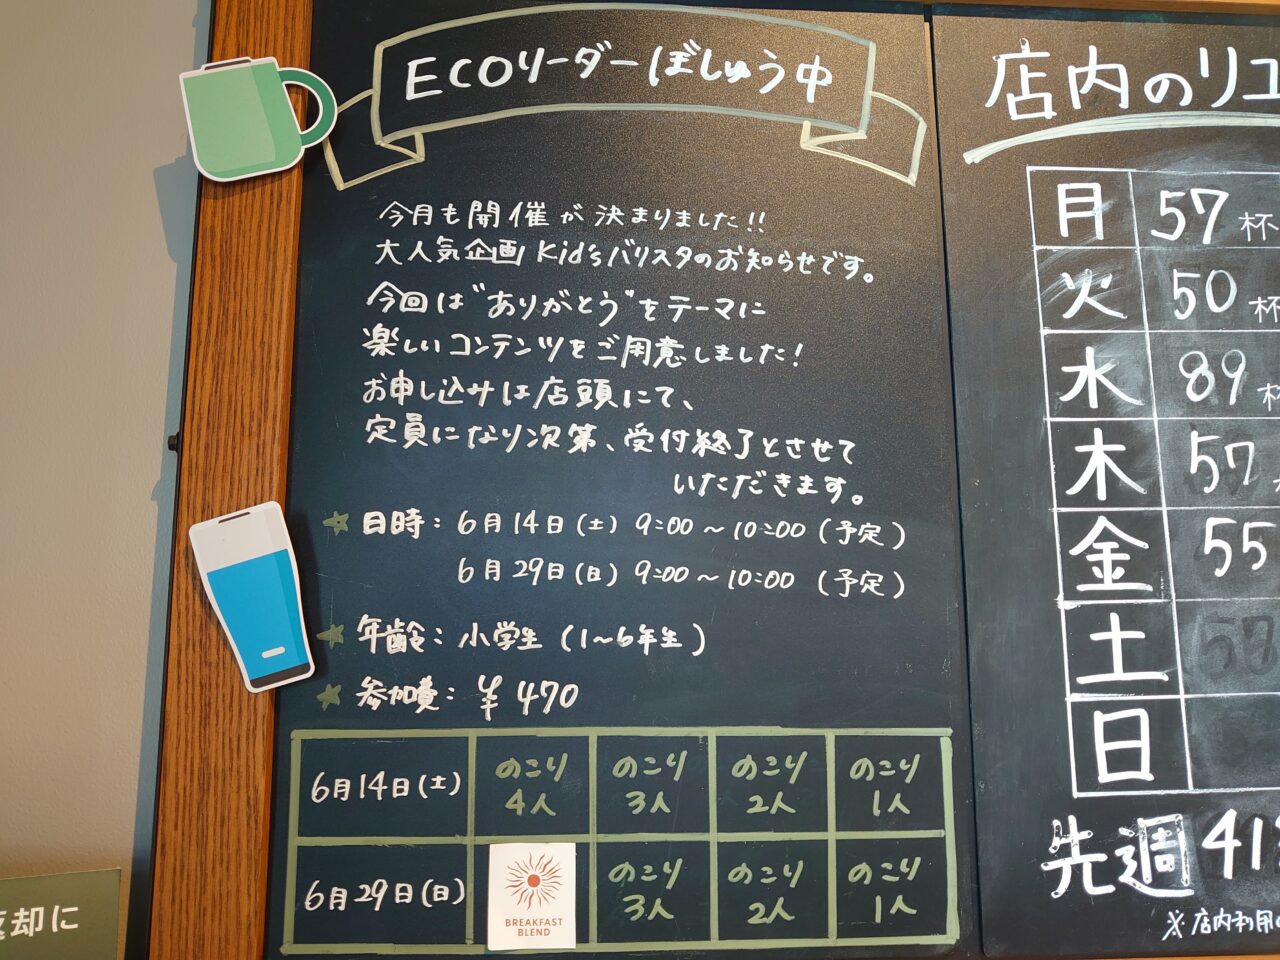 ECOリーダーぼしゅう中
今月も開催が決まりました!!
大人気企画Kid'sバリスタのお知らせです。
今回は"ありがとう"をテーマに
楽しいコンテンツをご用意しました!
お申し込みは店頭にて、
定員になり次第、受付終了とさせて
いただきます。
日時: 6月14日(土) 9:00~10:00 (予定)
6月29日(日) 9:00~10:00 (予定)
年齢: 小学生 (1~6年生)
参加費: ¥470
6月14日(土) のこり4人 のこり3人 のこり2人 のこり1人
6月29日(日) BREAKFAST BLEND のこり3人 のこり2人 のこり1人
店内のリユ
月 57杯
火 50杯
水 89杯
木 57
金 55
土
日
先週 41
※店内利用
却に